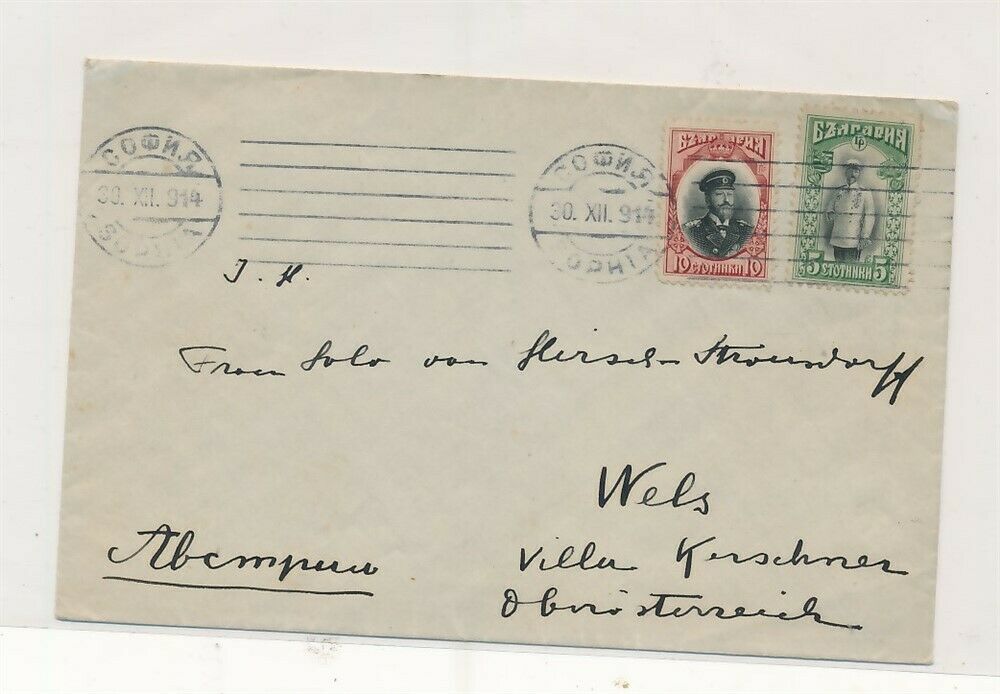 СОФИЯ
30. XII. 914
SOPHIA
СОФИЯ
30. XII. 914
SOPHIA
БЪЛГАРИЯ
10 СТОТИНКИ 10
БЪЛГАРИЯ
5 СТОТИНКИ 5
J. H.
Frau Lolo von Hirsch-Stronsdorff
Wels
Villa Kerschner
Oberösterreich
Австрия